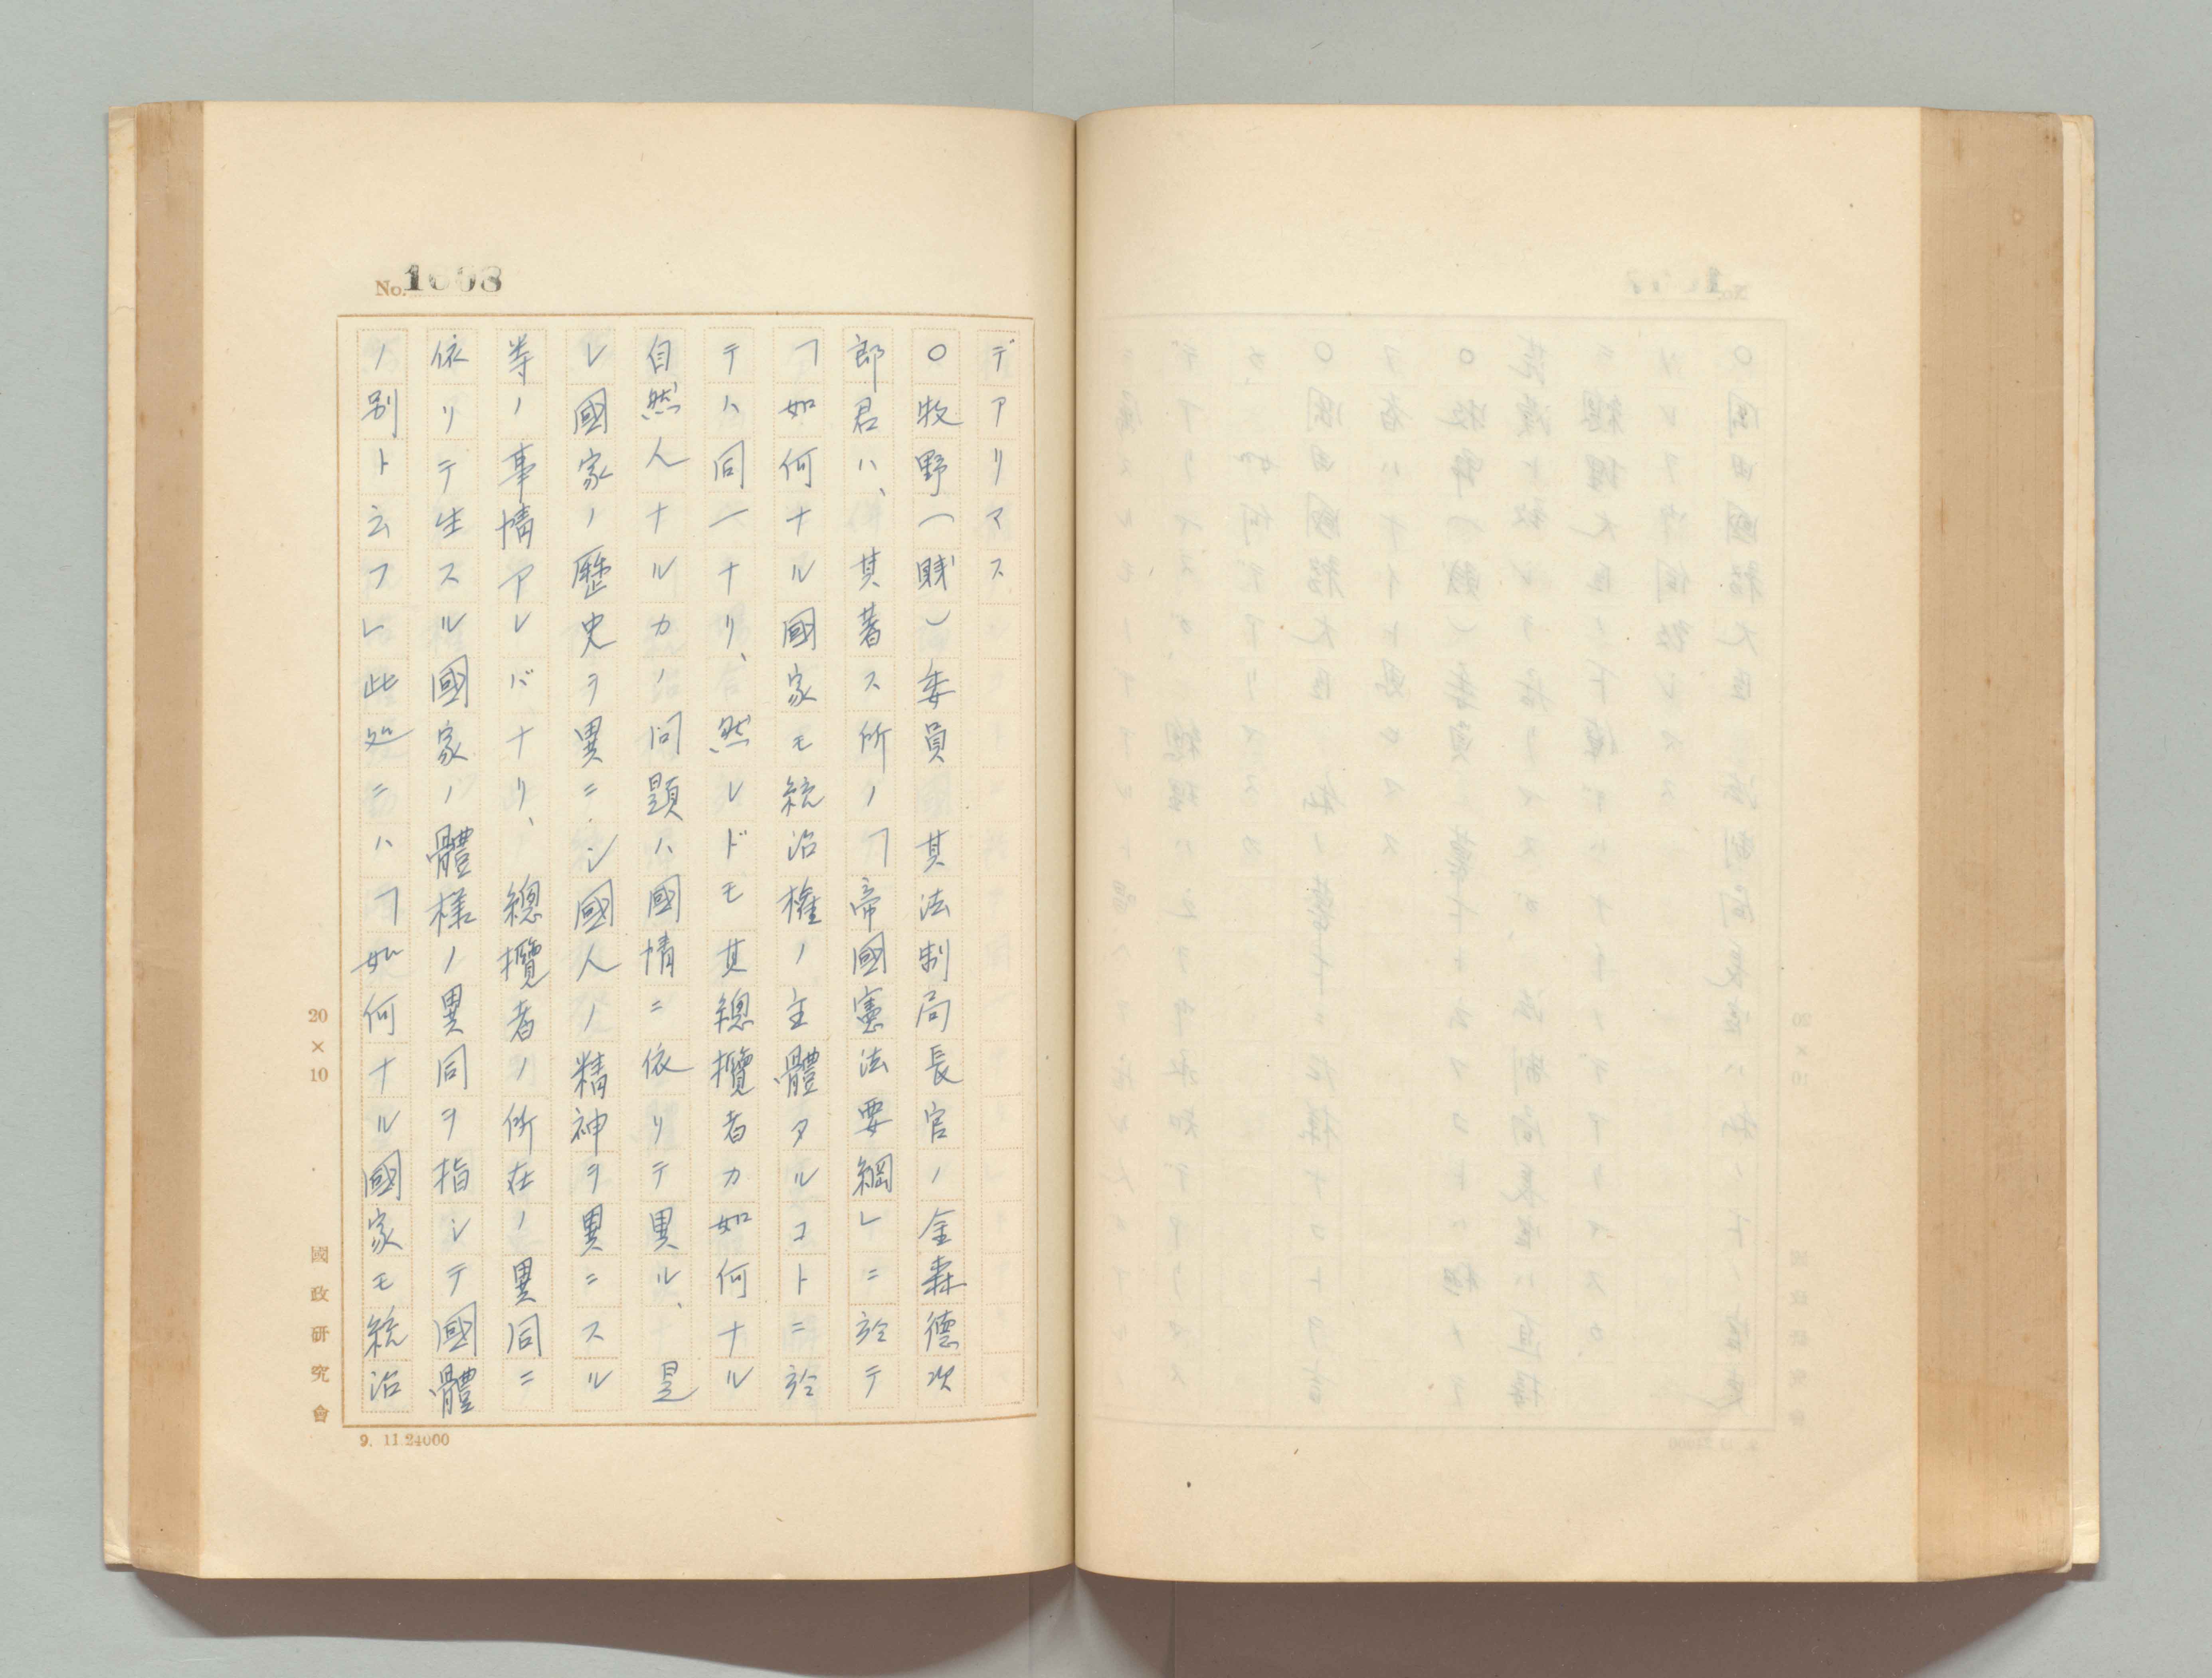 No. 1008
デアリマス
○牧野(賤)委員 其法制局長官ノ金森德次
郎君ハ、其著ス所ノ「帝國憲法要綱」ニ於テ
「如何ナル國家モ統治權ノ主體タルコトニ於
テハ同一ナリ、然レドモ其總攬者カ如何ナル
自然人ナルカノ問題ハ國情ニ依リテ異ル、是
レ國家ノ歷史ヲ異ニシ國人ノ精神ヲ異ニスル
等ノ事情アレバナリ、總攬者ノ所在ノ異同ニ
依リテ生スル國家ノ體樣ノ異同ヲ指シテ國體
ノ別ト云フ」此処ニハ「如何ナル國家モ統治
20×10
國政研究會
9. 11.24000